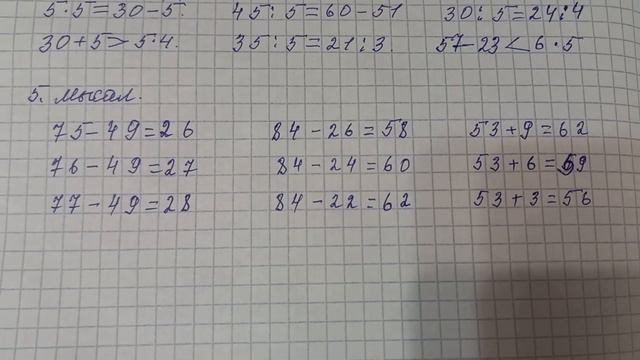 5·5=30-5. 45:5=60-51 30:5=24:4
30+5>5·4. 35:5=21:3. 57-23<6·5
5. мысал.
75-49=26 84-26=58 53+9=62
76-49=27 84-24=60 53+6=59
77-49=28 84-22=62 53+3=56